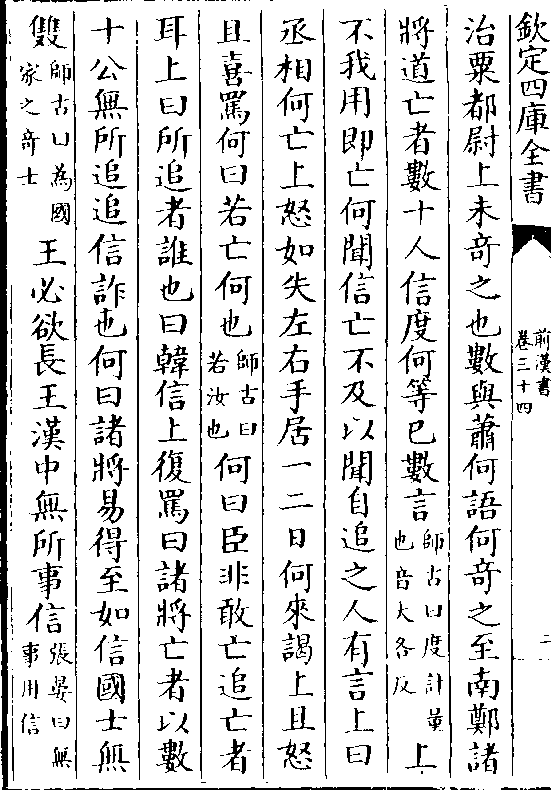 欽定四庫全書
前漢書
卷三十四
二
治粟都尉上未奇之也數與蕭何語何奇之至南鄭諸
將道亡者數十人信度何等已數言師古曰度計量也音大各反上
不我用即亡何聞信亡不及以聞自追之人有言上曰
丞相何亡上怒如失左右手居一二日何來謁上且怒
且喜罵何曰若亡何也師古曰若汝也何曰臣非敢亡追亡者
耳上曰所追者誰也曰韓信上復罵曰諸將亡者以數
十公無所追追信詐也何曰諸將易得至如信國士無
雙師古曰為國家之奇士王必欲長王漢中無所事信張晏曰無事用信